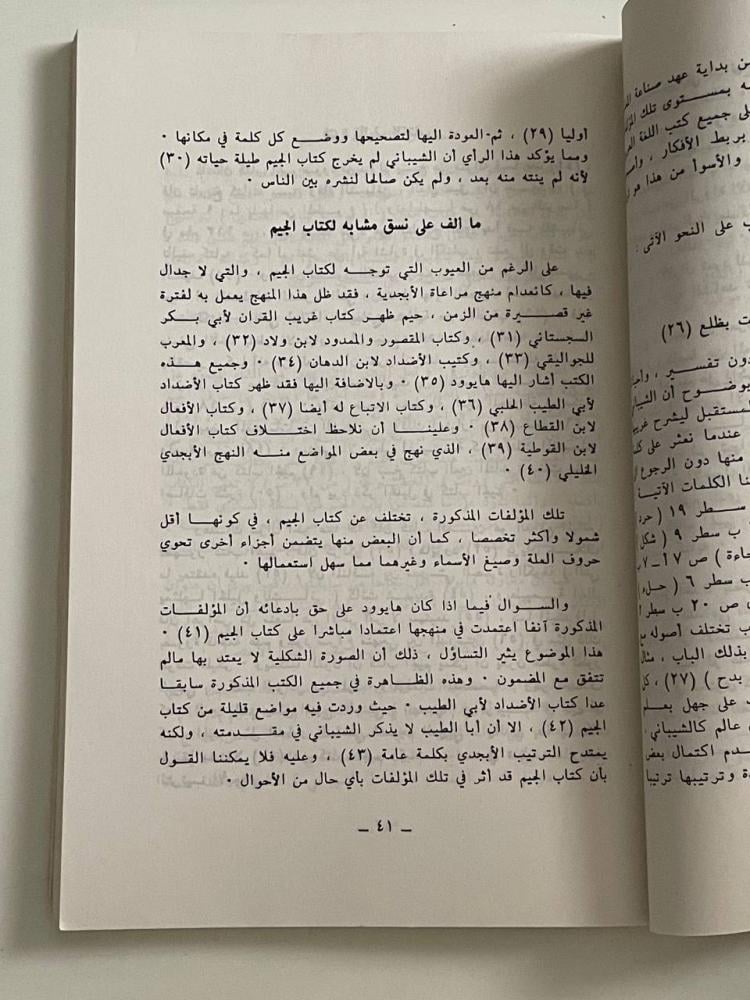 أوليا (٢٩) ، ثم العودة اليها لتصحيحها ووضع كل كلمة في مكانها ·
ومما يؤكد هذا الرأي أن الشيباني لم يخرج كتاب الجيم طيلة حياته (٣٠)
لأنه لم ينته منه بعد ، ولم يكن صالحا لنشره بين الناس ·
ما الف على نسق مشابه لكتاب الجيم
على الرغم من العيوب التي توجه لكتاب الجيم ، والتي لا جدال
فيها ، كانعدام منهج مراعاة الأبجدية ، فقد ظل هذا المنهج يعمل به لفترة
غير قصيرة من الزمن ، حيم ظهر كتاب غريب القران لأبي بكر
السجستاني (٣١) ، وكتاب المقصور والممدود لابن ولاد (٣٢) ، والمعرب
للجواليقي (٣٣) ، وكتيب الأضداد لابن الدهان (٣٤) · وجميع هذه
الكتب أشار اليها هايوود (٣٥) · وبالاضافة اليها فقد ظهر كتاب الأضداد
لأبي الطيب الحلبي (٣٦) ، وكتاب الاتباع له أيضا (٣٧) ، وكتاب الأفعال
لابن القطاع (٣٨) · وعلينا أن نلاحظ اختلاف كتاب الأفعال
لابن القوطية (٣٩) ، الذي نهج في بعض المواضع منه النهج الأبجدي
الخليلي (٤٠) ·
تلك المؤلفات المذكورة ، تختلف عن كتاب الجيم ، في كونها أقل
شمولا وأكثر تخصصا ، كما أن البعض منها يتضمن أجزاء أخرى تحوي
حروف العلة وصيغ الأسماء وغيرهما مما سهل استعمالها ·
والسوال فيما اذا كان هايوود على حق بادعائه أن المؤلفات
المذكورة آنفا اعتمدت في منهجها اعتمادا مباشرا على كتاب الجيم (٤١) ·
هذا الموضوع يثير التساؤل ، ذلك أن الصورة الشكلية لا يعتد بها مالم
تتفق مع المضمون · وهذه الظاهرة في جميع الكتب المذكورة سابقا
عدا كتاب الأضداد لأبي الطيب · حيث وردت فيه مواضع قليلة من كتاب
الجيم (٤٢) ، الا أن أبا الطيب لا يذكر الشيباني في مقدمته ، ولكنه
يمتدح الترتيب الأبجدي بكلمة عامة (٤٣) ، وعليه فلا يمكننا القول
بأن كتاب الجيم قد أثر في تلك المؤلفات بأي حال من الأحوال ·
— ٤١ —
من بداية عهد صناعة
بمستوى تلك
جميع كتب اللغة
بربط الأفكار ،
والأسوأ من هذا هو
على النحو الآتى :
بظلع (٢٦)
دون تفسير ،
بوضوح أن
المستقبل ليشرح
عندما نعثر على
منها دون الرجوع
الكلمات الآتية
سطر ١٩
ب سطر ٩ ( شكل
ص ١٧
ب سطر ٦
ص ٢٠ ب سطر
تختلف أصوله
بذلك الباب ،
بدح ) (٢٧) ،
على جهل
عالم كالشيباني
اكتمال بعض
وترتيبها ترتيبا